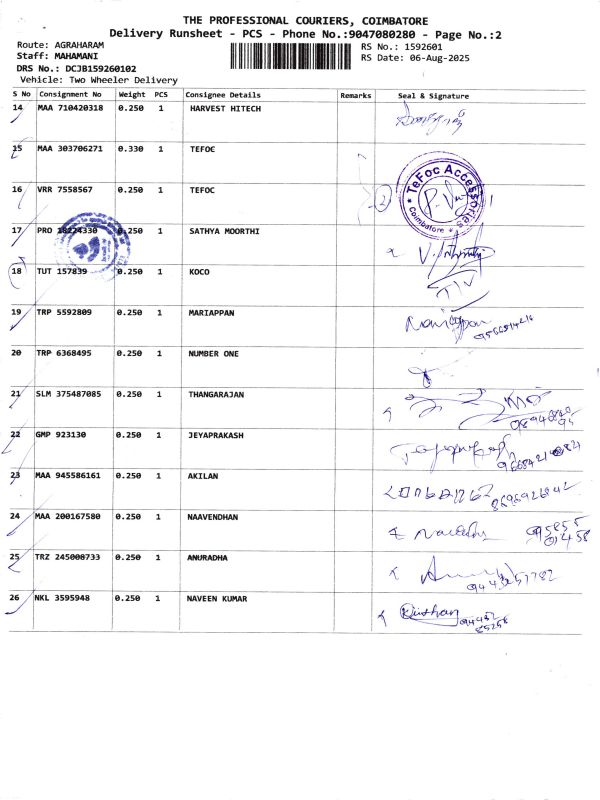 THE PROFESSIONAL COURIERS, COIMBATORE
Delivery Runsheet - PCS - Phone No.:9047080280 - Page No.:2
Route: AGRAHARAM RS No.: 1592601
Staff: MAHAMANI RS Date: 06-Aug-2025
DRS No.: DCJB159260102
Vehicle: Two Wheeler Delivery
S No Consignment No Weight PCS Consignee Details Remarks Seal & Signature
14 MAA 710420318 0.250 1 HARVEST HITECH
15 MAA 303706271 0.330 1 TEFOC
TeFoc Accessories
Coimbatore
16 VRR 7558567 0.250 1 TEFOC
17 PRO 18224330 0.250 1 SATHYA MOORTHI
18 TUT 157839 0.250 1 KOCO
19 TRP 5592809 0.250 1 MARIAPPAN Mariappan
20 TRP 6368495 0.250 1 NUMBER ONE
21 SLM 375487085 0.250 1 THANGARAJAN
22 GMP 923130 0.250 1 JEYAPRAKASH
23 MAA 945586161 0.250 1 AKILAN
24 MAA 200167580 0.250 1 NAAVENDHAN
25 TRZ 245008733 0.250 1 ANURADHA
26 NKL 3595948 0.250 1 NAVEEN KUMAR